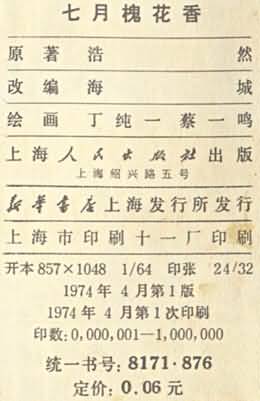 七月槐花香
原著 浩然
改编 海城
绘画 丁纯一 蔡一鸣
上海人民出版社出版
上海绍兴路五号
新华书店上海发行所发行
上海市印刷十一厂印刷
开本 857×1048 1/64 印张 24/32
1974年 4月第1版
1974年 4月第1次印刷
印数:0,000,001—1,000,000
统一书号:8171·876
定价:0.06元